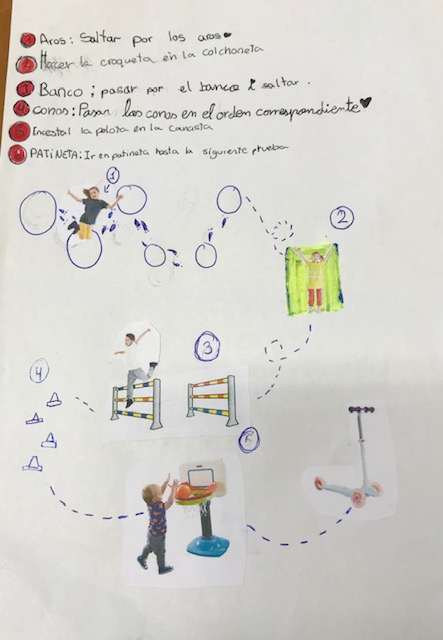 1 Aros: Saltar por los aros
2 Hacer la croqueta en la colchoneta
3 Banco; pasar por el banco i saltar.
4 conos: Pasar los conos en el orden correspondiente
5 Encestal la pelota en la canasta
6 PATINETA: Ir en patineta hasta la siguiente prueba
1
2
3
4
5